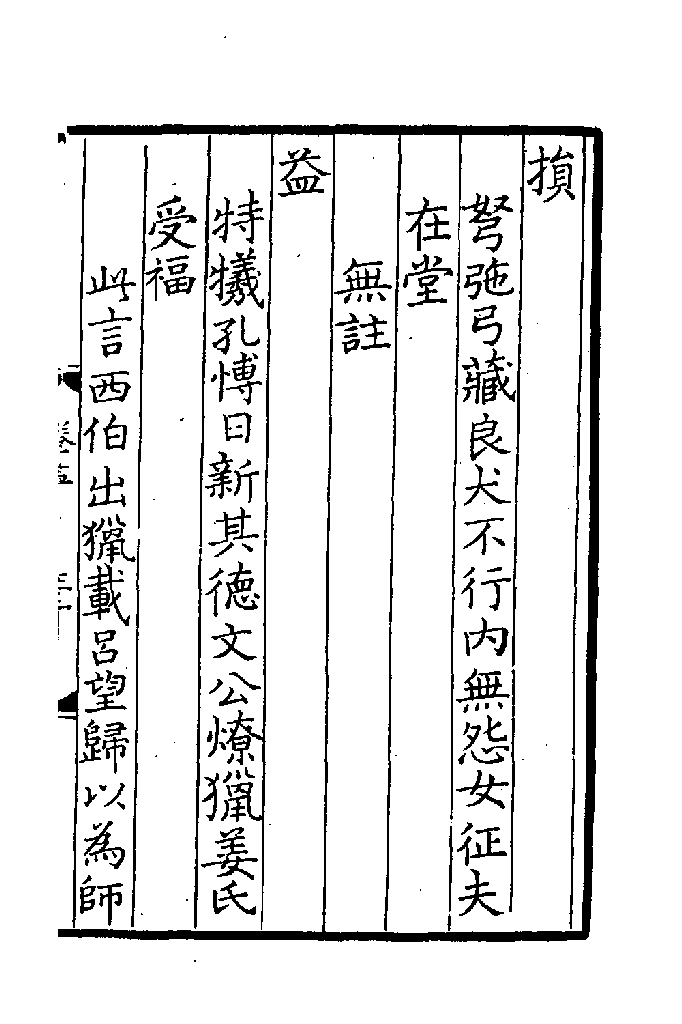 損
弩弛弓藏良犬不行内無怨女征夫
在堂
無註
益
特犧孔愽日新其德文公燎獵姜氏
受福
此言西伯出獵載吕望歸以為師